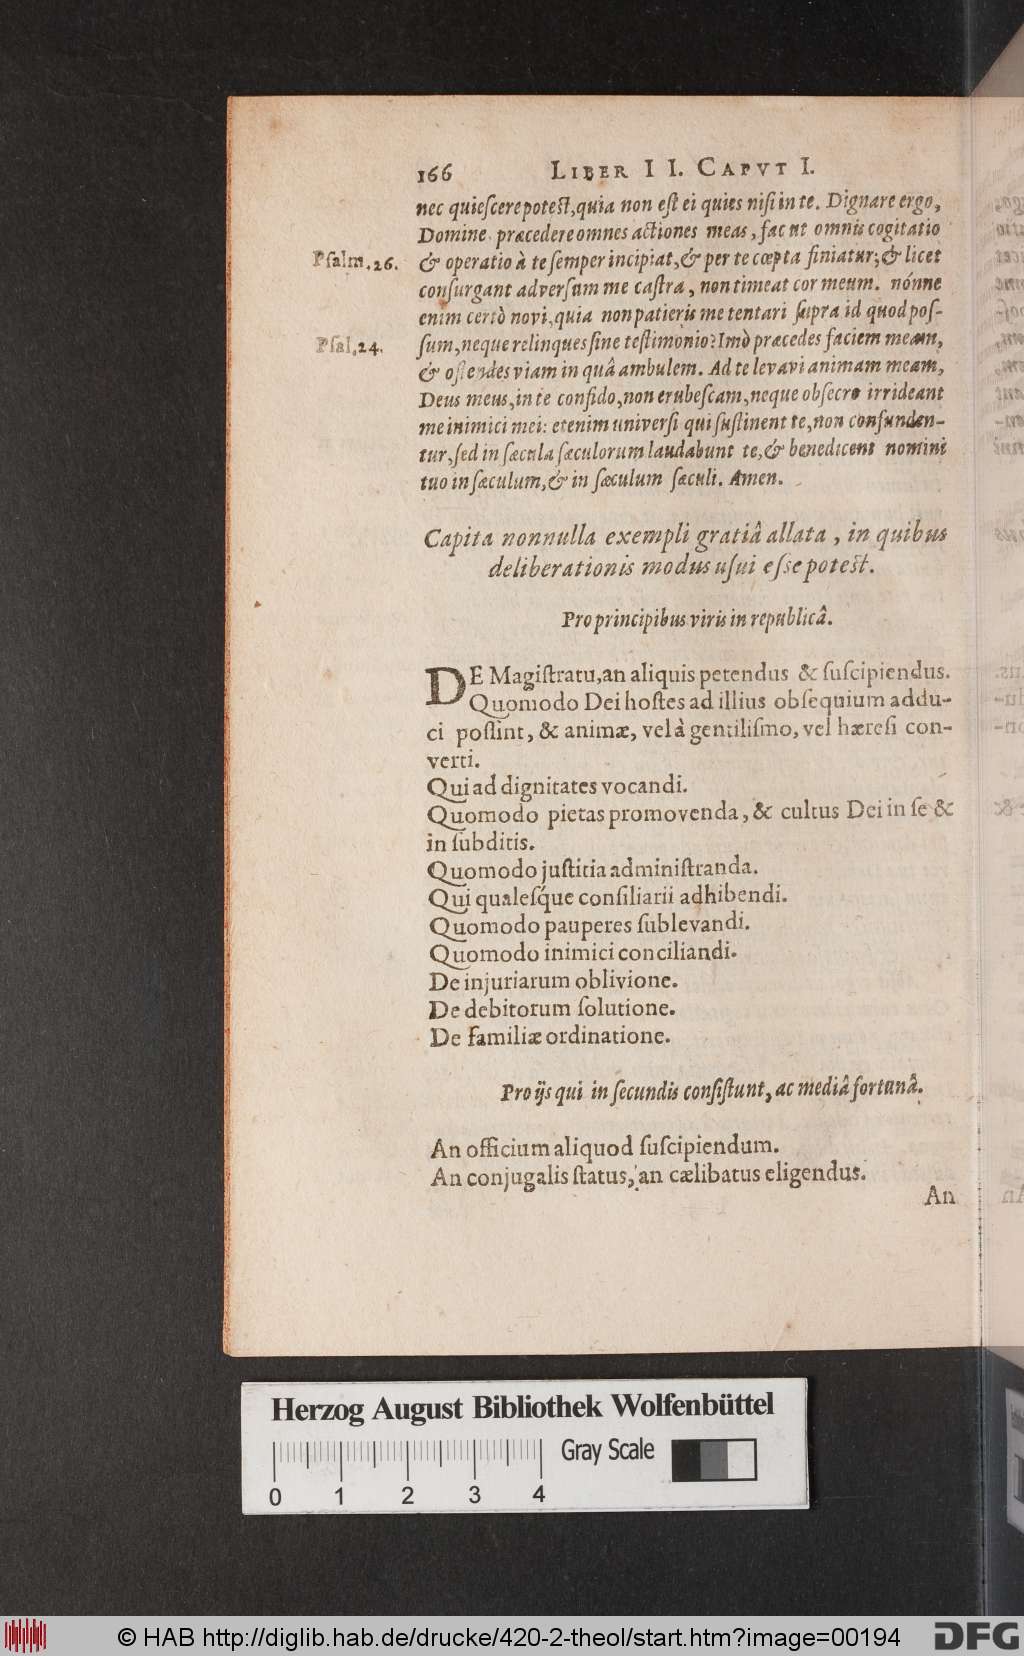 166 LIBER II. CAPVT I.
nec quieſcere poteſt, quia non eſt ei quies niſi in te. Dignare ergo,
Domine præcedere omnes actiones meas, fac ut omnis cogitatio
Pſalm. 26. & operatio à te ſemper incipiat, & per te cœpta finiatur; & licet
conſurgant adverſum me caſtra, non timeat cor meum. nónne
enim certò novi, quia non patieris me tentari ſupra id quod poſ-
Pſal. 24. ſum, neque relinques ſine teſtimonio? Imò præcedes faciem meam,
& oſtendes viam in quâ ambulem. Ad te levavi animam meam,
Deus meus, in te confido, non erubeſcam, neque obſecro irrideant
me inimici mei: etenim univerſi qui ſuſtinent te, non confunden-
tur, ſed in ſæcula ſæculorum laudabunt te, & benedicent nomini
tuo in ſæculum, & in ſæculum ſæculi. Amen.
Capita nonnulla exempli gratiâ allata, in quibus
deliberationis modus uſui eſſe poteſt.
Pro principibus viris in republicâ.
DE Magiſtratu, an aliquis petendus & ſuſcipiendus.
Quomodo Dei hoſtes ad illius obſequium addu-
ci poſſint, & animæ, vel à gentiliſmo, vel hæreſi con-
verti.
Qui ad dignitates vocandi.
Quomodo pietas promovenda, & cultus Dei in ſe &
in ſubditis.
Quomodo juſtitia adminiſtranda.
Qui qualeſq́ue conſiliarii adhibendi.
Quomodo pauperes ſublevandi.
Quomodo inimici conciliandi.
De injuriarum oblivione.
De debitorum ſolutione.
De familiæ ordinatione.
Pro ijs qui in ſecundis conſiſtunt, ac mediâ fortunâ.
An officium aliquod ſuſcipiendum.
An conjugalis ſtatus, an cælibatus eligendus.
An
Herzog August Bibliothek Wolfenbüttel
Gray Scale
0 1 2 3 4
© HAB http://diglib.hab.de/drucke/420-2-theol/start.htm?image=00194
DFG